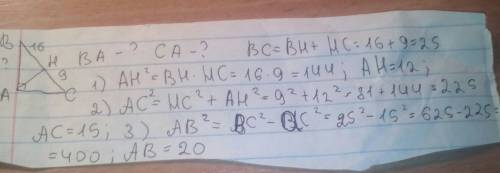 B 16
H BA - ? CA - ? BC = BH + HC = 16 + 9 = 25
? 9
A C
1) AH² = BH · HC = 16 · 9 = 144; AH = 12;
2) AC² = HC² + AH² = 9² + 12² = 81 + 144 = 225
AC = 15; 3) AB² = BC² - AC² = 25² - 15² = 625 - 225 =
= 400; AB = 20